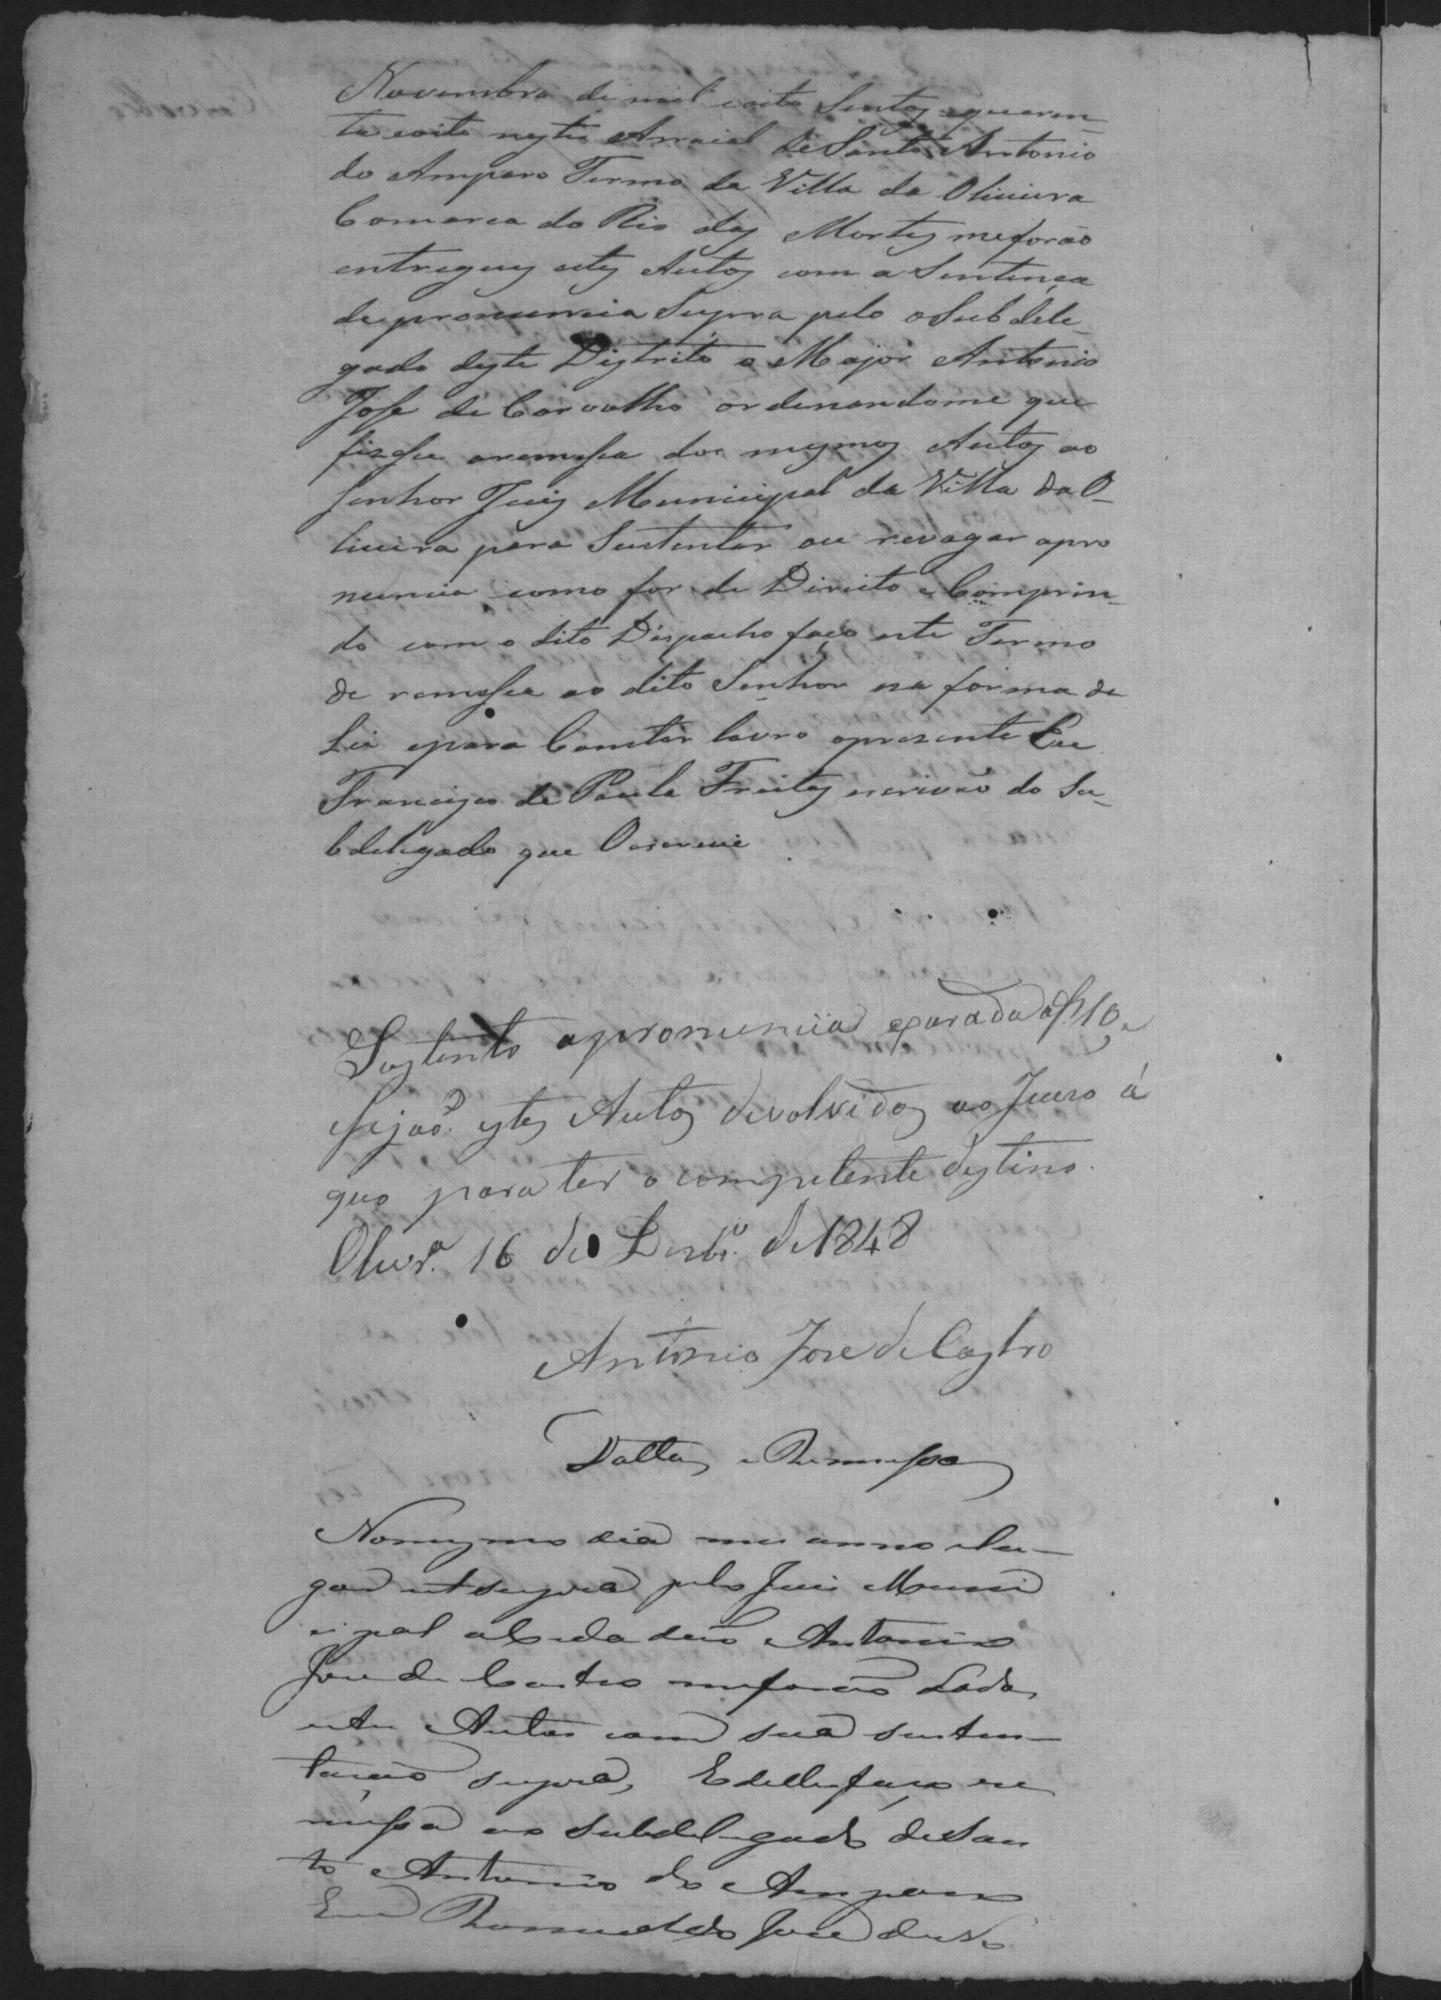 Novembro de mil oito Sentos equaren-
ta eoito neste Arraial de Santo Antonio
do Amparo Termo da Villa da Oliuiera
Comarca do Rio das Mortes meforão
entregues estes Autos com a Sentença
depronuncia Supra pelo o Sub dele-
gado deste Destrito o Major Antonio
Jose de Carvalho ordenandome que
fizesse aremessa dos mesmos Autos ao
Senhor Juiz Municipal da Villa da O-
liueira para Sustentar ou revogar apro
nuncia como for de Direito e Comprin-
do com o dito Despacho faço este Termo
de remessa ao dito Senhor na forma da
Lei epara Constar lavro opresente Eu
Francisco de Paula Freitas escrivão do Su-
bdelegado que Oescrevi
Sustento apronuncia exarada af 10, e
sejão estes Autos devolvidos ao Juizo á
quo para ter o competente destino.
Olivr.ª 16 de Dezbr.º de 1848
Antonio Jose de Castro
Datta e Remessa
Nomesmo dia mes anno elu-
gar utsupra pelo Juis Muni
cipal oCidadão Antonio
Jose de Castro meforão dados
estes Autos com sua susten-
tação supra, Edelles faço re
messa ao subdelegado de San
to Antonio do Amparo
Eu Romualdo Jose